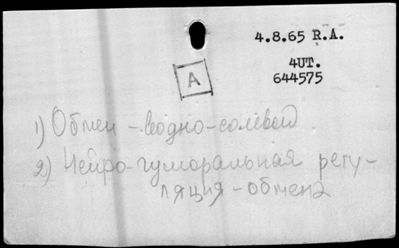 4.8.65 R.A.
4UT.
644575
A
1) Обмен - водно-солевой
2) Нейро-гуморальная регу-
ляция - обмена